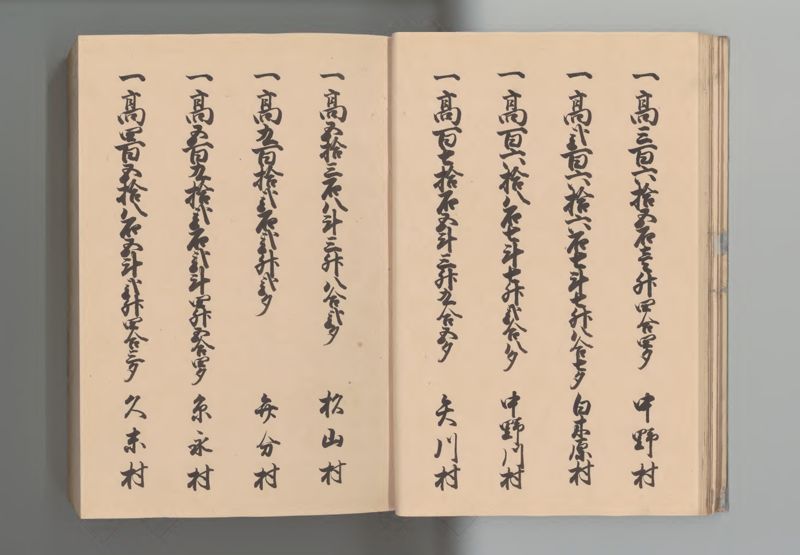 一高三百六拾五石壱升四合四夕 中野村
一高弐百六拾六石七斗七升八合七夕 白木原村
一高百六拾八石七斗七升弐合八夕 中野川村
一高百七拾石五斗三升九合五夕 矢川村
一高五拾三石八斗三升八合弐夕 松山村
一高九百拾弐石弐升弐夕 分村
一高五百九拾弐石弐斗四升五合四夕 永村
一高四百五拾八石五斗弐升四合三夕 久末村